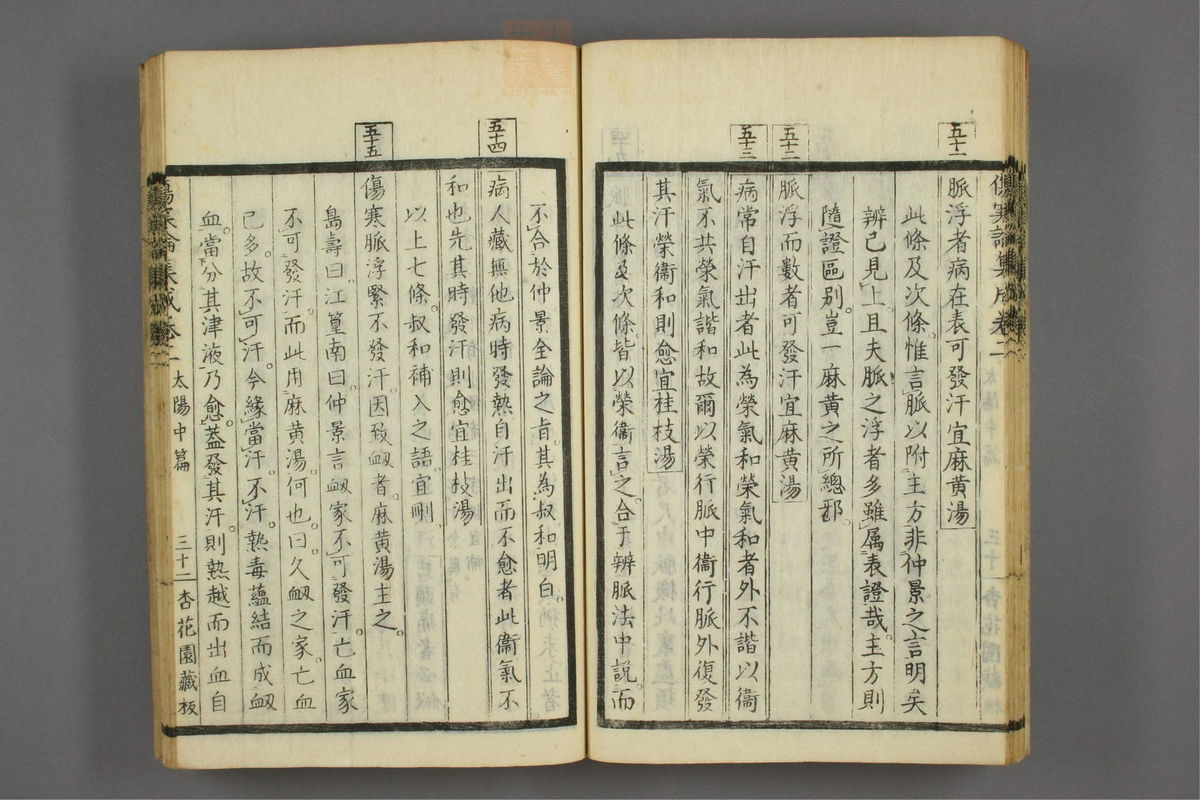 傷寒論集成卷二
五十一
脈浮者病在表可發汗宜麻黃湯
此條及次條惟言脈以附主方非仲景之言明矣
辨已見上且夫脈之浮者多雖属表證哉主方則
隨證區别豈一麻黃之所總邪
五十二
脈浮而數者可發汗宜麻黃湯
五十三
病常自汗出者此為榮氣和榮氣和者外不諧以衞
氣不共榮氣諧和故爾以榮行脈中衞行脈外復發
其汗榮衞和則愈宜桂枝湯
此條及次條皆以榮衞言之合于辨脈法中說而
不合於仲景全論之旨其為叔和明白
五十四
病人藏無他病時發熱自汗出而不愈者此衞氣不
和也先其時發汗則愈宜桂枝湯
以上七條叔和補入之語宜刪
五十五
傷寒脈浮緊不發汗因致衂者麻黃湯主之
嵒壽曰江篁南曰仲景言衂家不可發汗亡血家
不可發汗而此用麻黃湯何也曰久衂之家亡血
已多故不可汗今緣當汗不汗熱毒蘊結而成衂
血當分其津液乃愈蓋發其汗則熱越而出血自
傷寒論集成卷二 太陽中篇 三十二 杏花園藏板